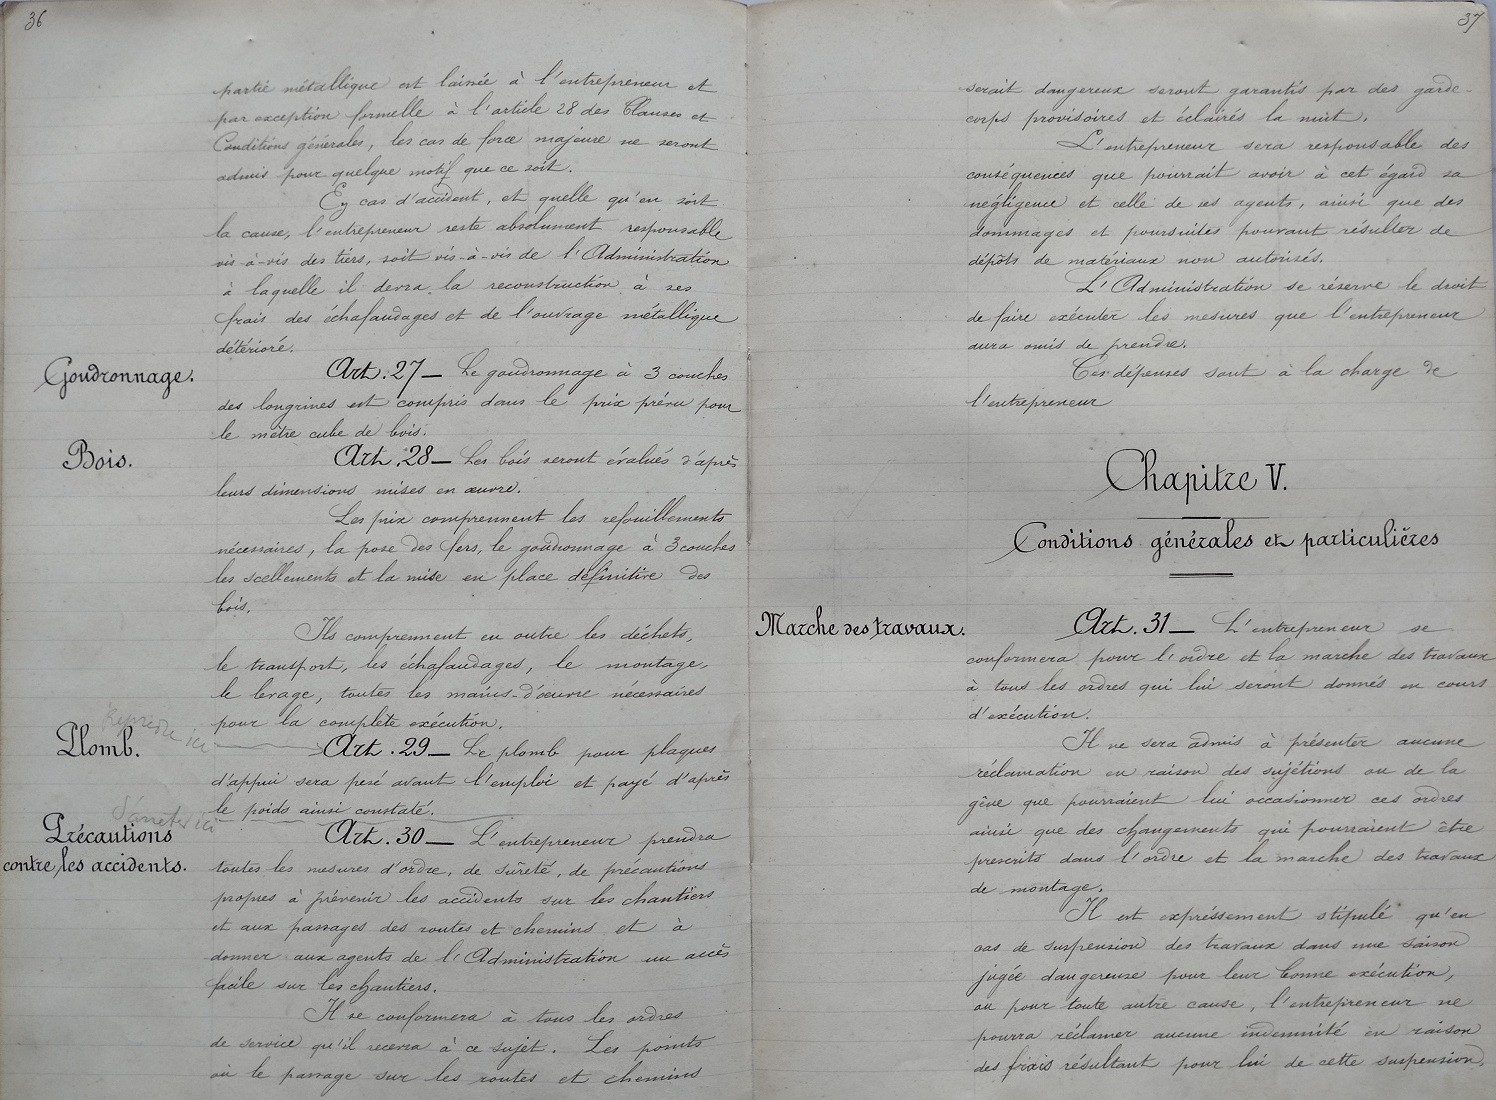 36
partie métallique est laissée à l'entrepreneur et
par exception formelle à l'article 28 des Clauses et
Conditions générales, les cas de force majeure ne seront
admis pour quelque motif que ce soit.
En cas d'accident, et quelle qu'en soit
la cause, l'entrepreneur reste absolument responsable
vis-à-vis des tiers, soit vis-à-vis de l'Administration
à laquelle il devra la reconstruction à ses
frais des échafaudages et de l'ouvrage métallique
détérioré.
Goudronnage.
Art. 27 — Le goudronnage à 3 couches
des longrines est compris dans le prix prévu pour
le mètre cube de bois.
Bois.
Art. 28 — Les bois seront évalués d'après
leurs dimensions mises en œuvre.
Les prix comprennent les refouillements
nécessaires, la pose des fers, le goudronnage à 3 couches
les scellements et la mise en place définitive des
bois.
Ils comprennent en outre les déchets,
le transport, les échafaudages, le montage,
le levage, toutes les mains-d'œuvre nécessaires
pour la complète exécution.
Reprendre ici
Plomb.
Art. 29 — Le plomb pour plaques
d'appui sera pesé avant l'emploi et payé d'après
le poids ainsi constaté.
S'arrêter ici
Précautions
contre les accidents.
Art. 30 — L'entrepreneur prendra
toutes les mesures d'ordre, de sûreté, de précautions
propres à prévenir les accidents sur les chantiers
et aux passages des routes et chemins et à
donner aux agents de l'Administration un accès
facile sur les chantiers.
Il se conformera à tous les ordres
de service qu'il recevra à ce sujet. Les points
où le passage sur les routes et chemins
37
serait dangereux seront garantis par des garde-
corps provisoires et éclairés la nuit.
L'entrepreneur sera responsable des
conséquences que pourrait avoir à cet égard sa
négligence et celle de ses agents, ainsi que des
dommages et poursuites pouvant résulter de
dépôts de matériaux non autorisés.
L'Administration se réserve le droit
de faire exécuter les mesures que l'entrepreneur
aura omis de prendre.
Ces dépenses sont à la charge de
l'entrepreneur
Chapitre V.
Conditions générales et particulières
Marche des travaux.
Art. 31 — L'entrepreneur se
conformera pour l'ordre et la marche des travaux
à tous les ordres qui lui seront donnés en cours
d'exécution.
Il ne sera admis à présenter aucune
réclamation en raison des sujétions ou de la
gêne que pourraient lui occasionner ces ordres
ainsi que des changements qui pourraient être
prescrits dans l'ordre et la marche des travaux
de montage.
Il est expréssement stipulé qu'en
cas de suspension des travaux dans une saison
jugée dangereuse pour leur bonne exécution,
ou pour toute autre cause, l'entrepreneur ne
pourra réclamer aucune indemnité en raison
des frais résultant pour lui de cette suspension.